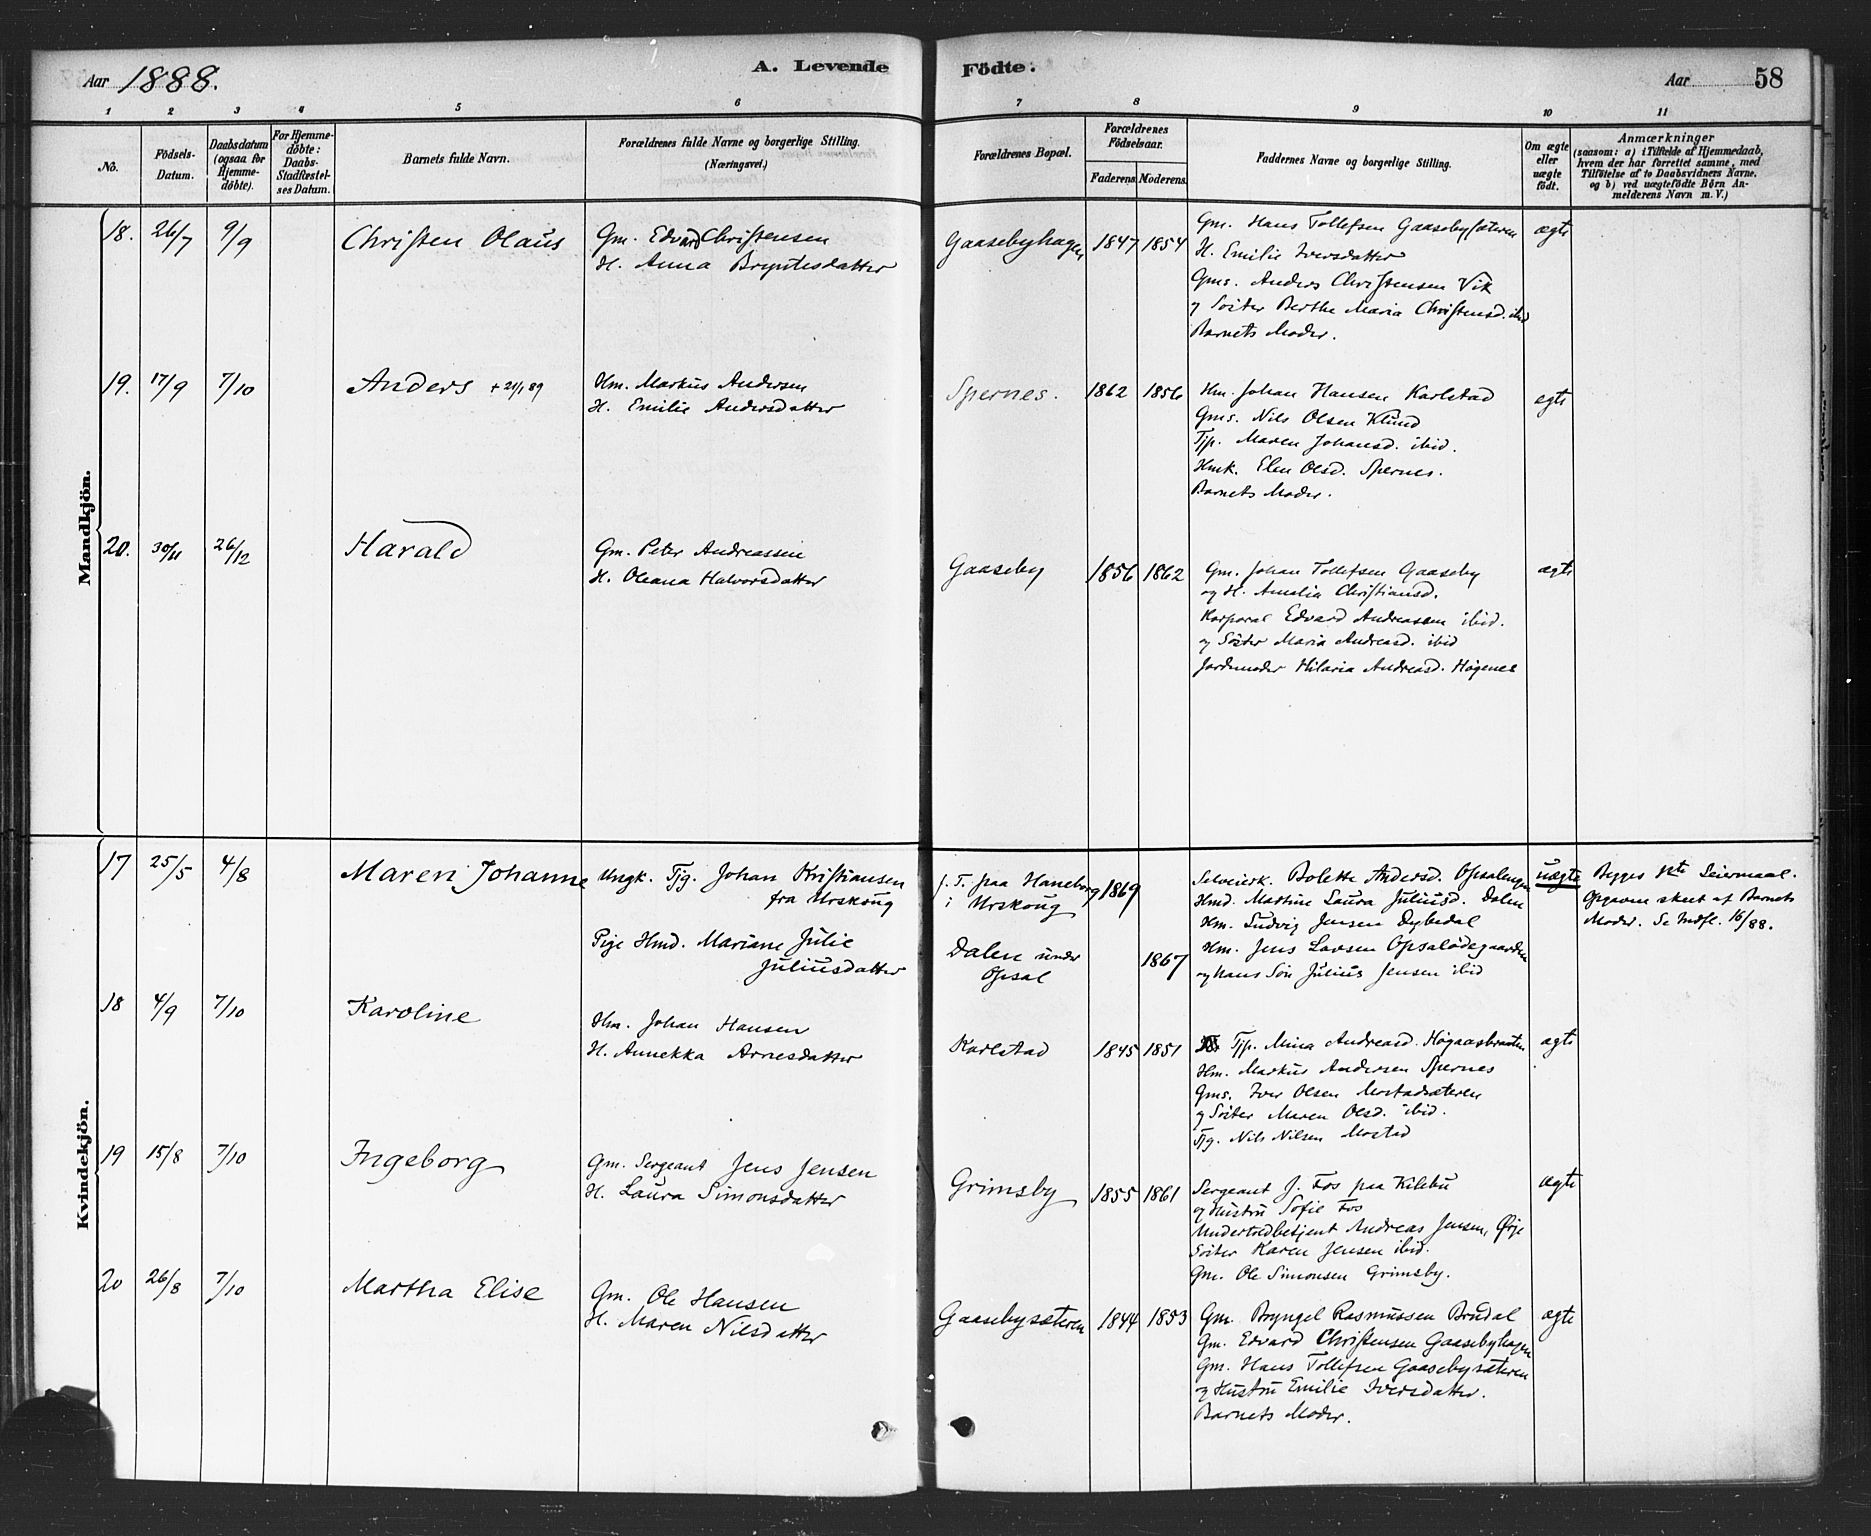 Aar 1888.
A. Levende Födte.
Aar 58
1 2 3 4 5 6 7 8 9 10 11
No.
Födsels-Datum.
Daabsdatum (ogsaa for Hjemme-döbte).
For Hjemme-döbte: Daabs-Stadfæstel-ses Datum.
Barnets fulde Navn.
Forældrenes fulde Navne og borgerlige Stilling.
(Næringsvei.)
Forældrenes Bopæl.
Forældrenes Födselsaar.
Faderens. Moderens.
Faddernes Navne og borgerlige Stilling.
Om ægte eller uægte födt.
Anmærkninger
(saasom: a) i Tilfælde af Hjemmedaab, hvem der har forrettet samme, med Tilföielse af to Daabsvidners Navne. og b) ved uægtefödte Börn Anmelderens Navn m. V.)
Mandkjön.
18. 26/7 9/9 Christen Olaus
Gm. Edvard Christensen
H. Anna Bryntesdatter
Gaasebyhagen 1847 1854
Gm. Hans Tollefsen Gaasebysæteren
H. Emilie Iversdatter
Gms. Anders Christensen Vik
og Søster Berthe Maria Christensd. ibid
Barnets Moder.
ægte
19. 17/9 7/10 Anders + 21/1 89
Hm. Markus Andersen
H. Emilie Andersdatter
Spernes. 1862 1856
Hm. Johan Hansen Karlstad
Gms. Nils Olsen Klund
Tjp. Maren Johansd. ibid.
Hmk. Elen Olsd. Spernes.
Barnets Moder.
ægte
20. 30/11 26/12 Harald
Gm. Peter Andreassen
H. Oleana Halvorsdatter
Gaaseby 1856 1862
Gm. Johan Tollefsen Gaaseby
og H. Amalia Christiansd.
Korporal Edvard Andreassen ibid.
og Søster Maria Andreasd. ibid
Jordmoder Hilaria Andreasd. Høgenes
ægte
Kvindekjön.
17 25/5 4/8 Maren Johanne
Ungk. Tjg. Johan Kristiansen
fra Urskoug
Pige Hmd. Mariane Julie
Juliusdatter
f. T. paa Haneborg 1869
i Urskoug
Dalen under 1867
Opsal
Selveierk. Bolette Andersd. Opsalengen
Hmd. Martine Laura Juliusd. Dalen
Hm. Ludvig Jensen Dybedal
Hm. Jens Larsen Opsalødegaarden
og hans Søn Julius Jensen ibid
uægte
Begges 1ste Leiermaal.
Opgaven skeet af Barnets
Moder. Se Indfl. 16/88.
18 4/9 7/10 Karoline
Hm. Johan Hansen
H. Annekka Arnesdatter
Karlstad 1845 1851
Tjp. Mina Andreasd. Høgaasbraaten
Hm. Markus Andersen Spernes
Gms. Iver Olsen Mostadsæteren
og Søster Maren Olsd. ibid.
Tjg. Nils Nilsen Mostad
ægte
19 15/8 7/10 Ingeborg
Gm. Sergeant Jens Jensen
H. Laura Simonsdatter
Grimsby 1855 1861
Sergeant J. Fos paa Kilebu
og Hustru Sofie Fos
Undertoldbetjent Andreas Jensen, Ørje
Søster Karen Jensen ibid.
Gm. Ole Simonsen Grimsby.
ægte
20 26/8 7/10 Martha Elise
Gm. Ole Hansen
H. Maren Nilsdatter
Gaasebysæteren 1844 1853
Gm. Bryngel Rasmussen Brudal
Gm. Edvard Christensen Gaasebyhagen
Gm. Hans Tollefsen Gaasebysæteren
og Hustru Emilie Iversdatter.
Barnets Moder.
ægte